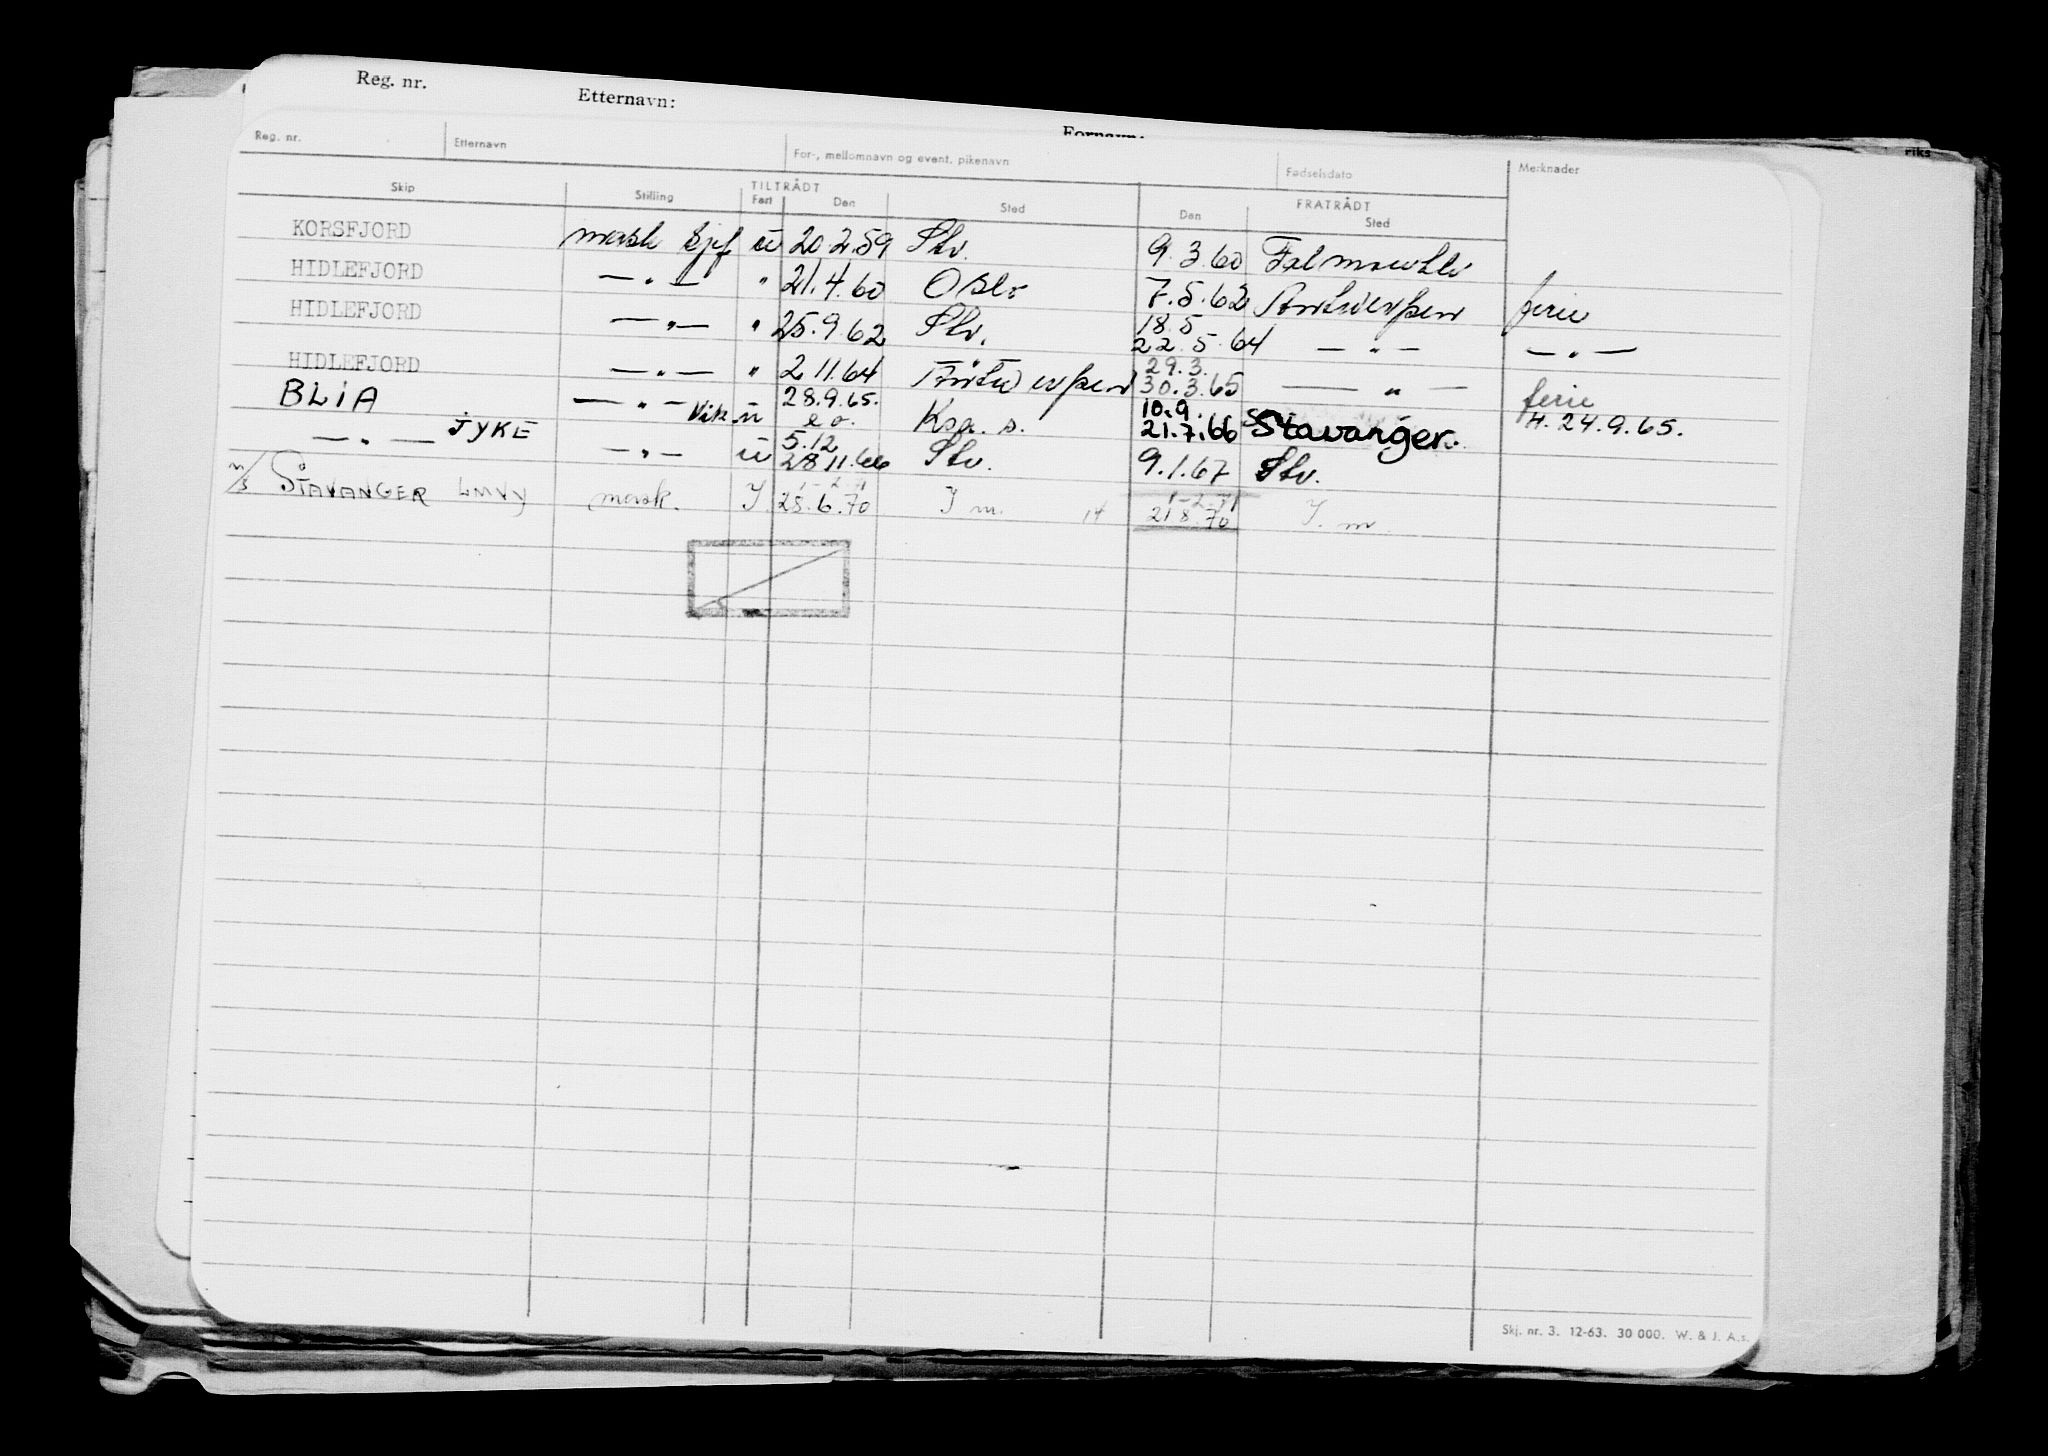 Reg. nr. Etternavn: Fornavn:
riks
Reg. nr. Etternavn For-, mellomnavn og event. pikenavn Fødselsdato Merknader
Skip Stilling TILTRÅDT FRATRÅDT
Fart Den Sted Den Sted
KORSFJORD mask sjef u 20.2.59 Stv. 9.3.60 Falmouth
HIDLEFJORD — " — " 21.4.60 Oslo 7.5.62 Antwerpen ferie
18.5
HIDLEFJORD — " — " 25.9.62 Stv. 22.5.64 — " — — " —
29.3.
HIDLEFJORD — " — " 2 11.64 Antwerpen 30.3.65 — " — ferie
28.9.65. 10.9.
BLIA — " — Vik. u e o. Kra. s. 21.7.66 Stavanger. H. 24.9.65.
5.12
— " — JYKE — " — u 28 11.66 Stv. 9.1.67 Stv.
1-2-71
M/S STAVANGER LMVY mask. I. 25.6.70 I m. 14 21 8.70 I. m.
Skj. nr. 3. 12-63. 30 000. W. & J. A.s.